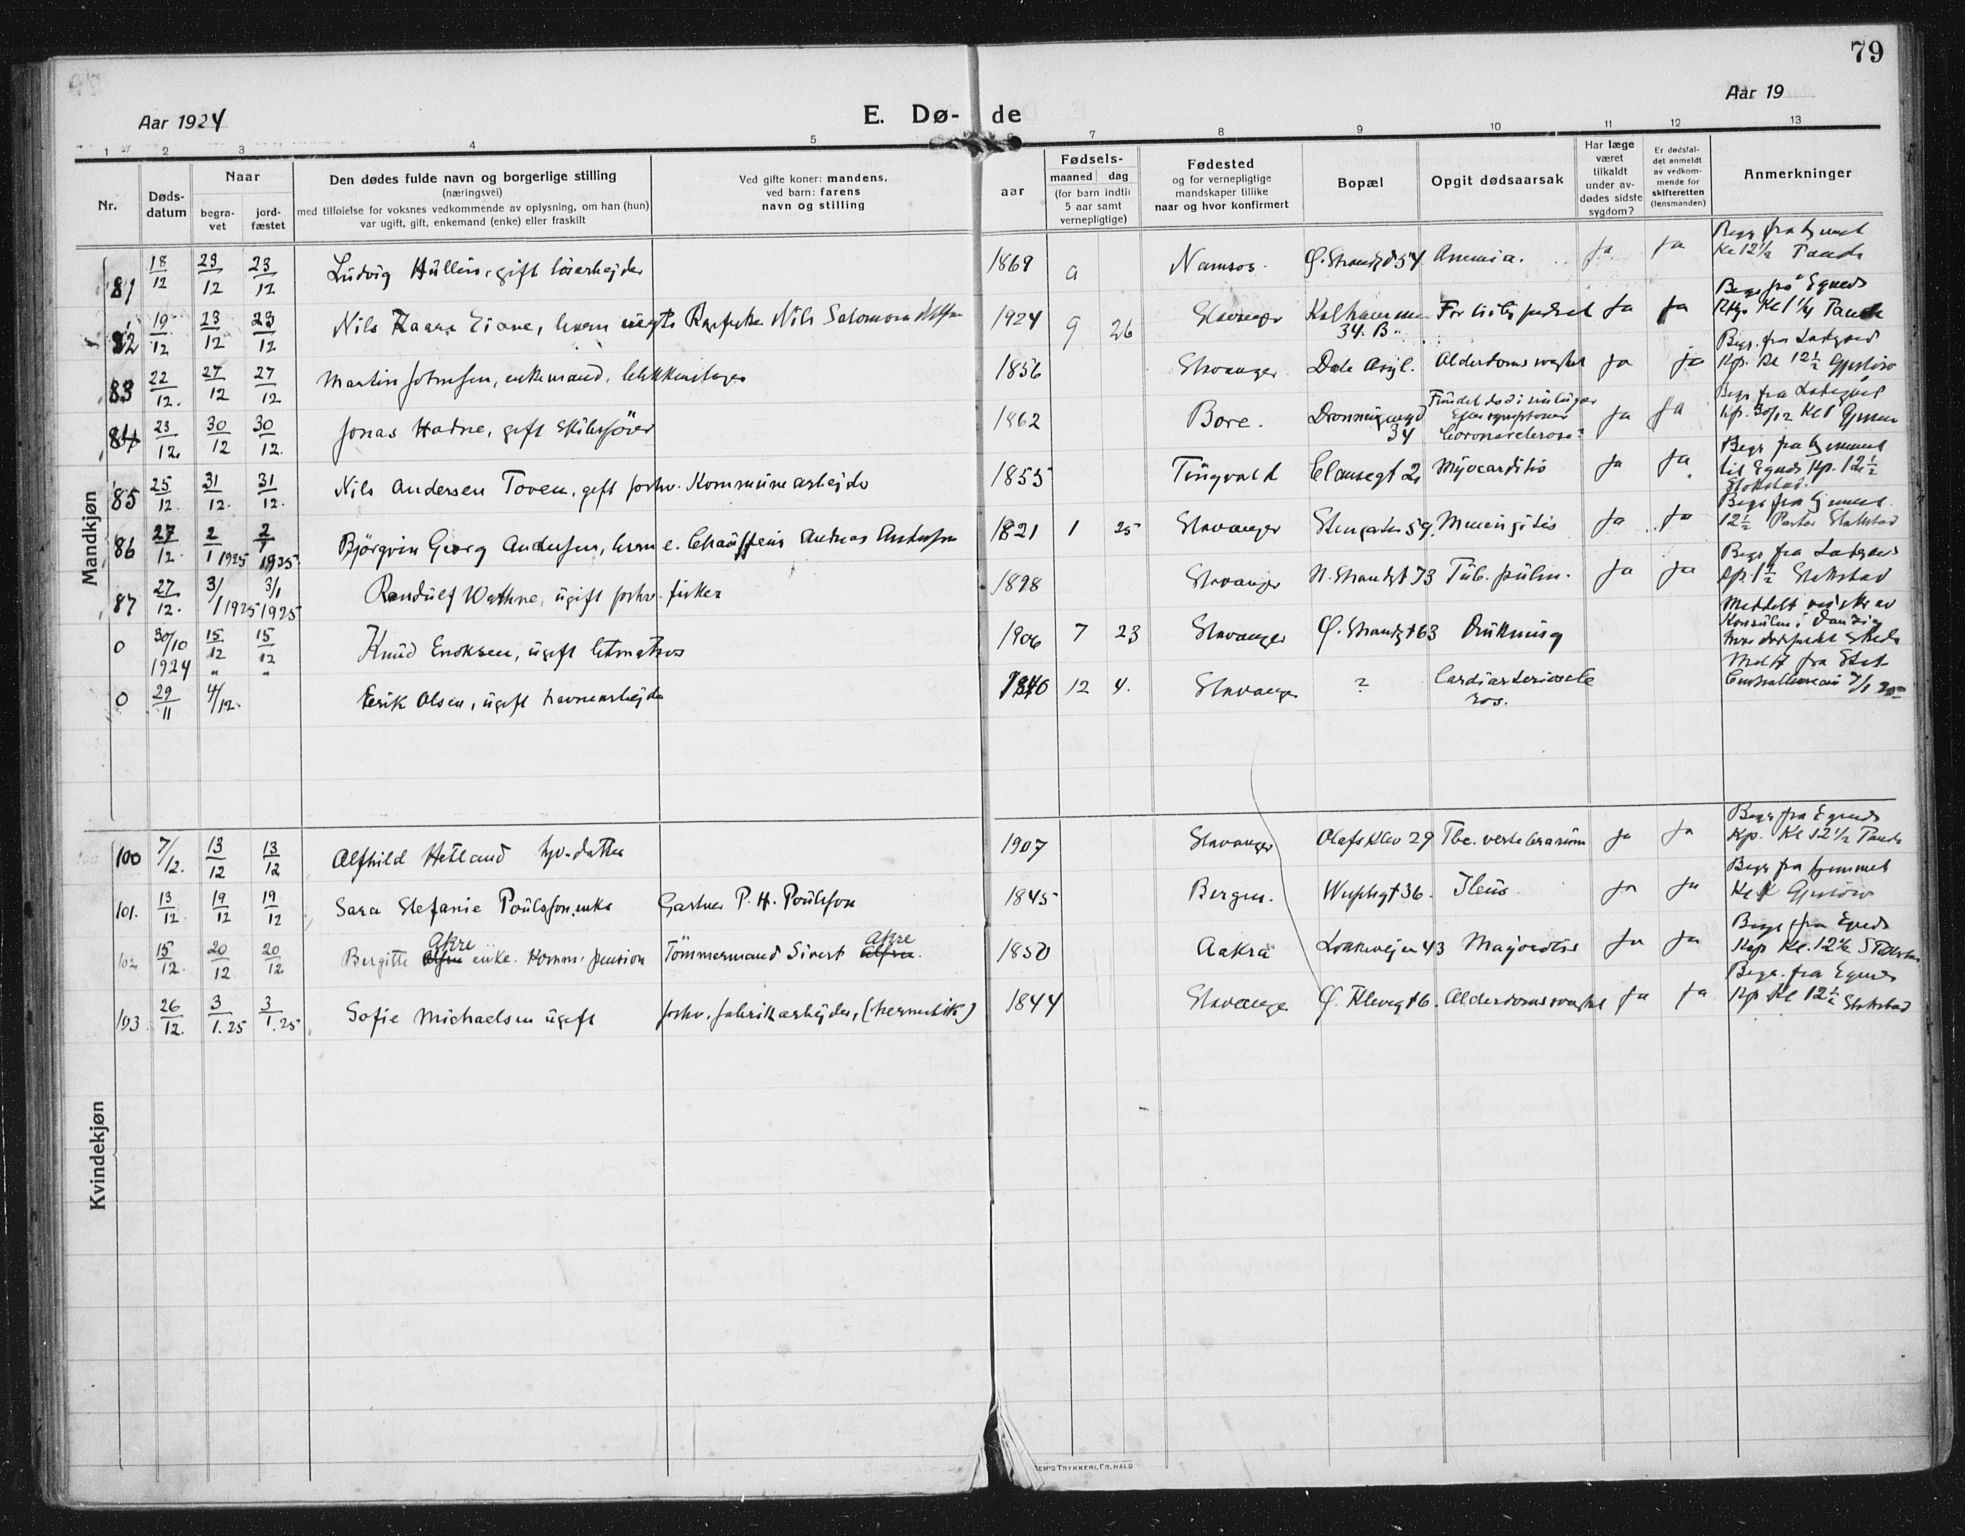 79
Aar 1924
E. Dø- de
Aar 19
1 2 3 4 5 7 8 9 10 11 12 13
Nr.
Døds-
datum
Naar
begra-
vet
jord-
fæstet
Den dødes fulde navn og borgerlige stilling
(næringsvei)
med tilføielse for voksnes vedkommende av oplysning, om han (hun)
var ugift, gift, enkemand (enke) eller fraskilt
Ved gifte koner: mandens,
ved barn: farens
navn og stilling
aar
Fødsels-
maaned dag
(for barn indtil
5 aar samt
vernepligtige)
Fødested
og for vernepligtige
mandskaper tillike
naar og hvor konfirmert
Bopæl
Opgit dødsaarsak
Har læge
været
tilkaldt
under av-
dødes sidste
sygdom?
Er dødsfal-
det anmeldt
av vedkom-
mende for
skifteretten
(lensmanden)
Anmerkninger
Mandkjøn
81 18/12 23/12 23/12 Ludvig Hüllin, gift løsarbejder 1869 Namsos. Ø. Strandgt 54 Anæmia. ja ja Begr fra hjemmet
Kl 12 1/2 Tande
82 19/12 23/12 23/12 Nils Kaare Eiane, Nils Salomon 1924 9 26 Stavanger 34. B. ja ja Begr fra Egneds
Kl 1 1/4 Tande
83 22/12. 27/12 27/12 Martin Johnsen, enkemand, 1856 Stavanger Dale Asyl. Alderdomssvaghet ja ja Begr. fra Ladegaard
Kp. Kl 12 1/2 Gjerløw
84 23/12. 30/12 30/12. Jonas Hadne, gift Skibsfører 1862 Bore. 34 ja ja Begr fra Ladegård
kp. 30/12 Kl 1
85 25/12. 31/12. 31/12. Nils Andersen Toven, gift forhv. Kommunearbejder 1855 Tingvold Clausegt 2 Myocarditis ja ja Begr fra hjemmet
til Egneds Kp. 12 1/2
Stokstad.
86 27/12. 2/1 1925 2/1 1925 Bjørgvin Georg Andersen, Chauffeur Andreas Andersen 1821 1 25 Stavanger Stengaten 59. Meningitis ja ja Begr fra hjemmet
12 1/2 Pastor Stokstad
87 27/12. 3/1 1925 3/1 1925 Randulf Wathne, ugift forhv. fisker 1898 Stavanger N. Strandgt 73 Tub. pulm. ja ja Begr fra Ladegaard
kp. 1 1/2 Stokstad
0 30/10 1924 15/12 15/12 Knud Enoksen, ugift letmatros 1906 7 23 Stavanger Ø. Strandgt 63 Drukning Meddelt
Konsulen i Danzig
0 29/11 4/12. Erik Olsen, ugift havnearbejder 1840 12 4. Stavanger ? Cardiarterioscleros. Medd fra Stat.
Centralbureau
Kvindekjøn
100 7/12. 13/12 13/12 Alfhild Hetland hjv. datter 1907 Stavanger Olafsklev 29 Tbc. vertebrarum ja ja Begr fra Egneds
Kp. Kl 12 1/2 Tande
101. 13/12. 19/12 19/12 Sara Stefanie Poulsson, enke Gartner P. H. Poulsson 1845 Bergen. 36. Ileus. ja ja Begr fra hjemmet
Kl 1 Gjerløw
102 15/12. 20/12 20/12 Bergitte Akre enke. Komm. pension Tømmermand Sivert Akre 1850 Aakra Lokkevejen 43 ja ja Begr fra Egneds
Kap Kl. 12 1/2 Stokstad
103 26/12. 3/1.25 3/1.25 Sofie Michaelsen ugift forhv. fabrikarbejder, (hermetik) 1844 Stavanger Ø. Klevegt 6. Alderdomssvaghet ja ja Begr. fra Egneds
Kp Kl 12 1/2 Stokstad
TRYKKERI, FR. HALD